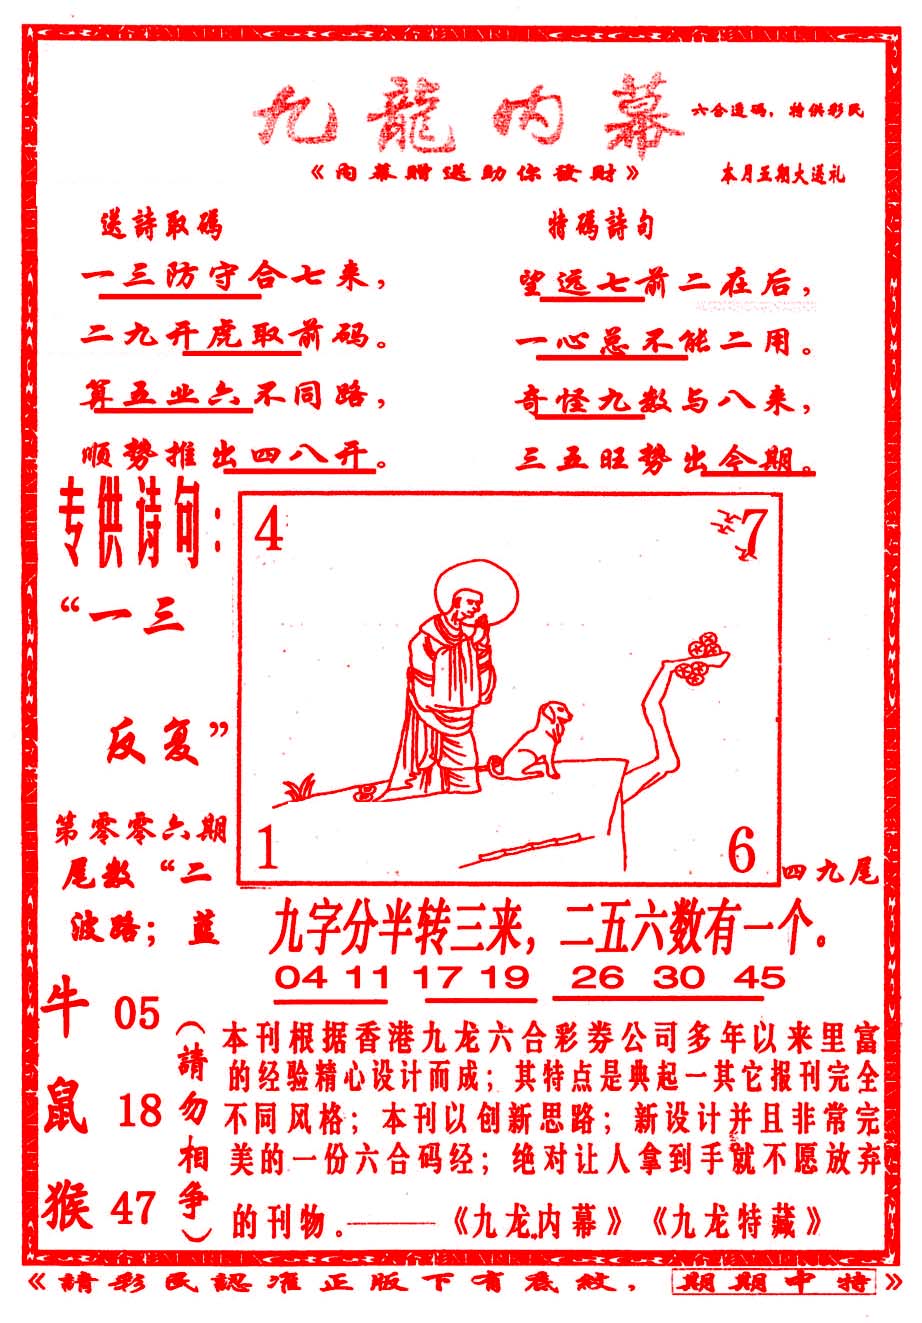 九龍内幕
六合透码，特供彩民
《内幕赠送助你發财》
本月五期大送礼
送詩取碼
一三防守合七来，
二九开虎取前码。
算五业六不同路，
顺势推出四八开。
特碼詩句
望远七前二在后，
一心总不能二用。
奇怪九数与八来，
三五旺势出今期。
专供诗句：
“一三
反复”
第零零六期
尾数“二
波路；蓝
4
7
1
6
四九尾
九字分半转三来，二五六数有一个。
04 11 17 19 26 30 45
牛 05
鼠 18
猴 47
（請勿相争）
本刊根据香港九龙六合彩券公司多年以来里富
的经验精心设计而成；其特点是典起一其它报刊完全
不同风格；本刊以创新思路；新设计并且非常完
美的一份六合码经；绝对让人拿到手就不愿放弃
的刊物。——《九龙内幕》《九龙特藏》
《請彩民認准正版下有底紋，期期中特》